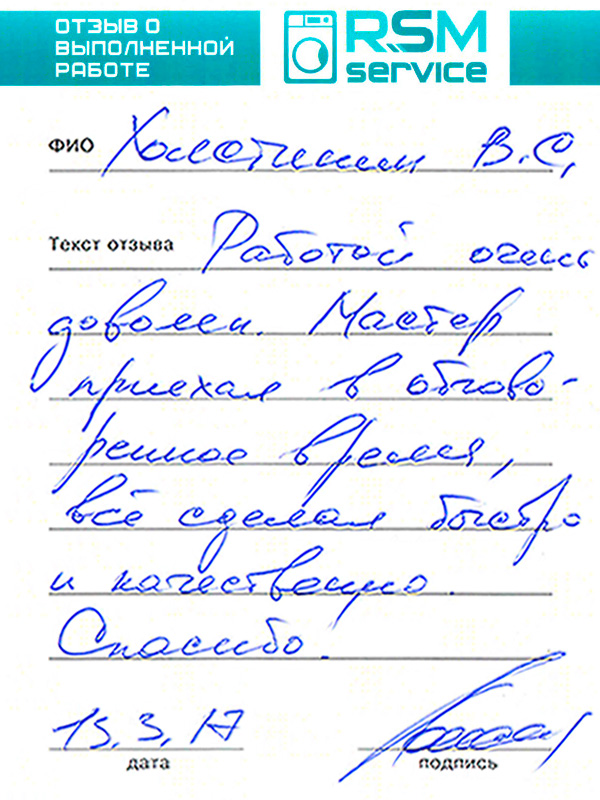 ОТЗЫВ О
ВЫПОЛНЕННОЙ
РАБОТЕ
RSM
service
ФИО В.С.
Текст отзыва Работой очень
доволен. Мастер
приехал в обгово-
ренное время,
всё сделал быстро
и качественно.
Спасибо!
13.3.17
дата подпись